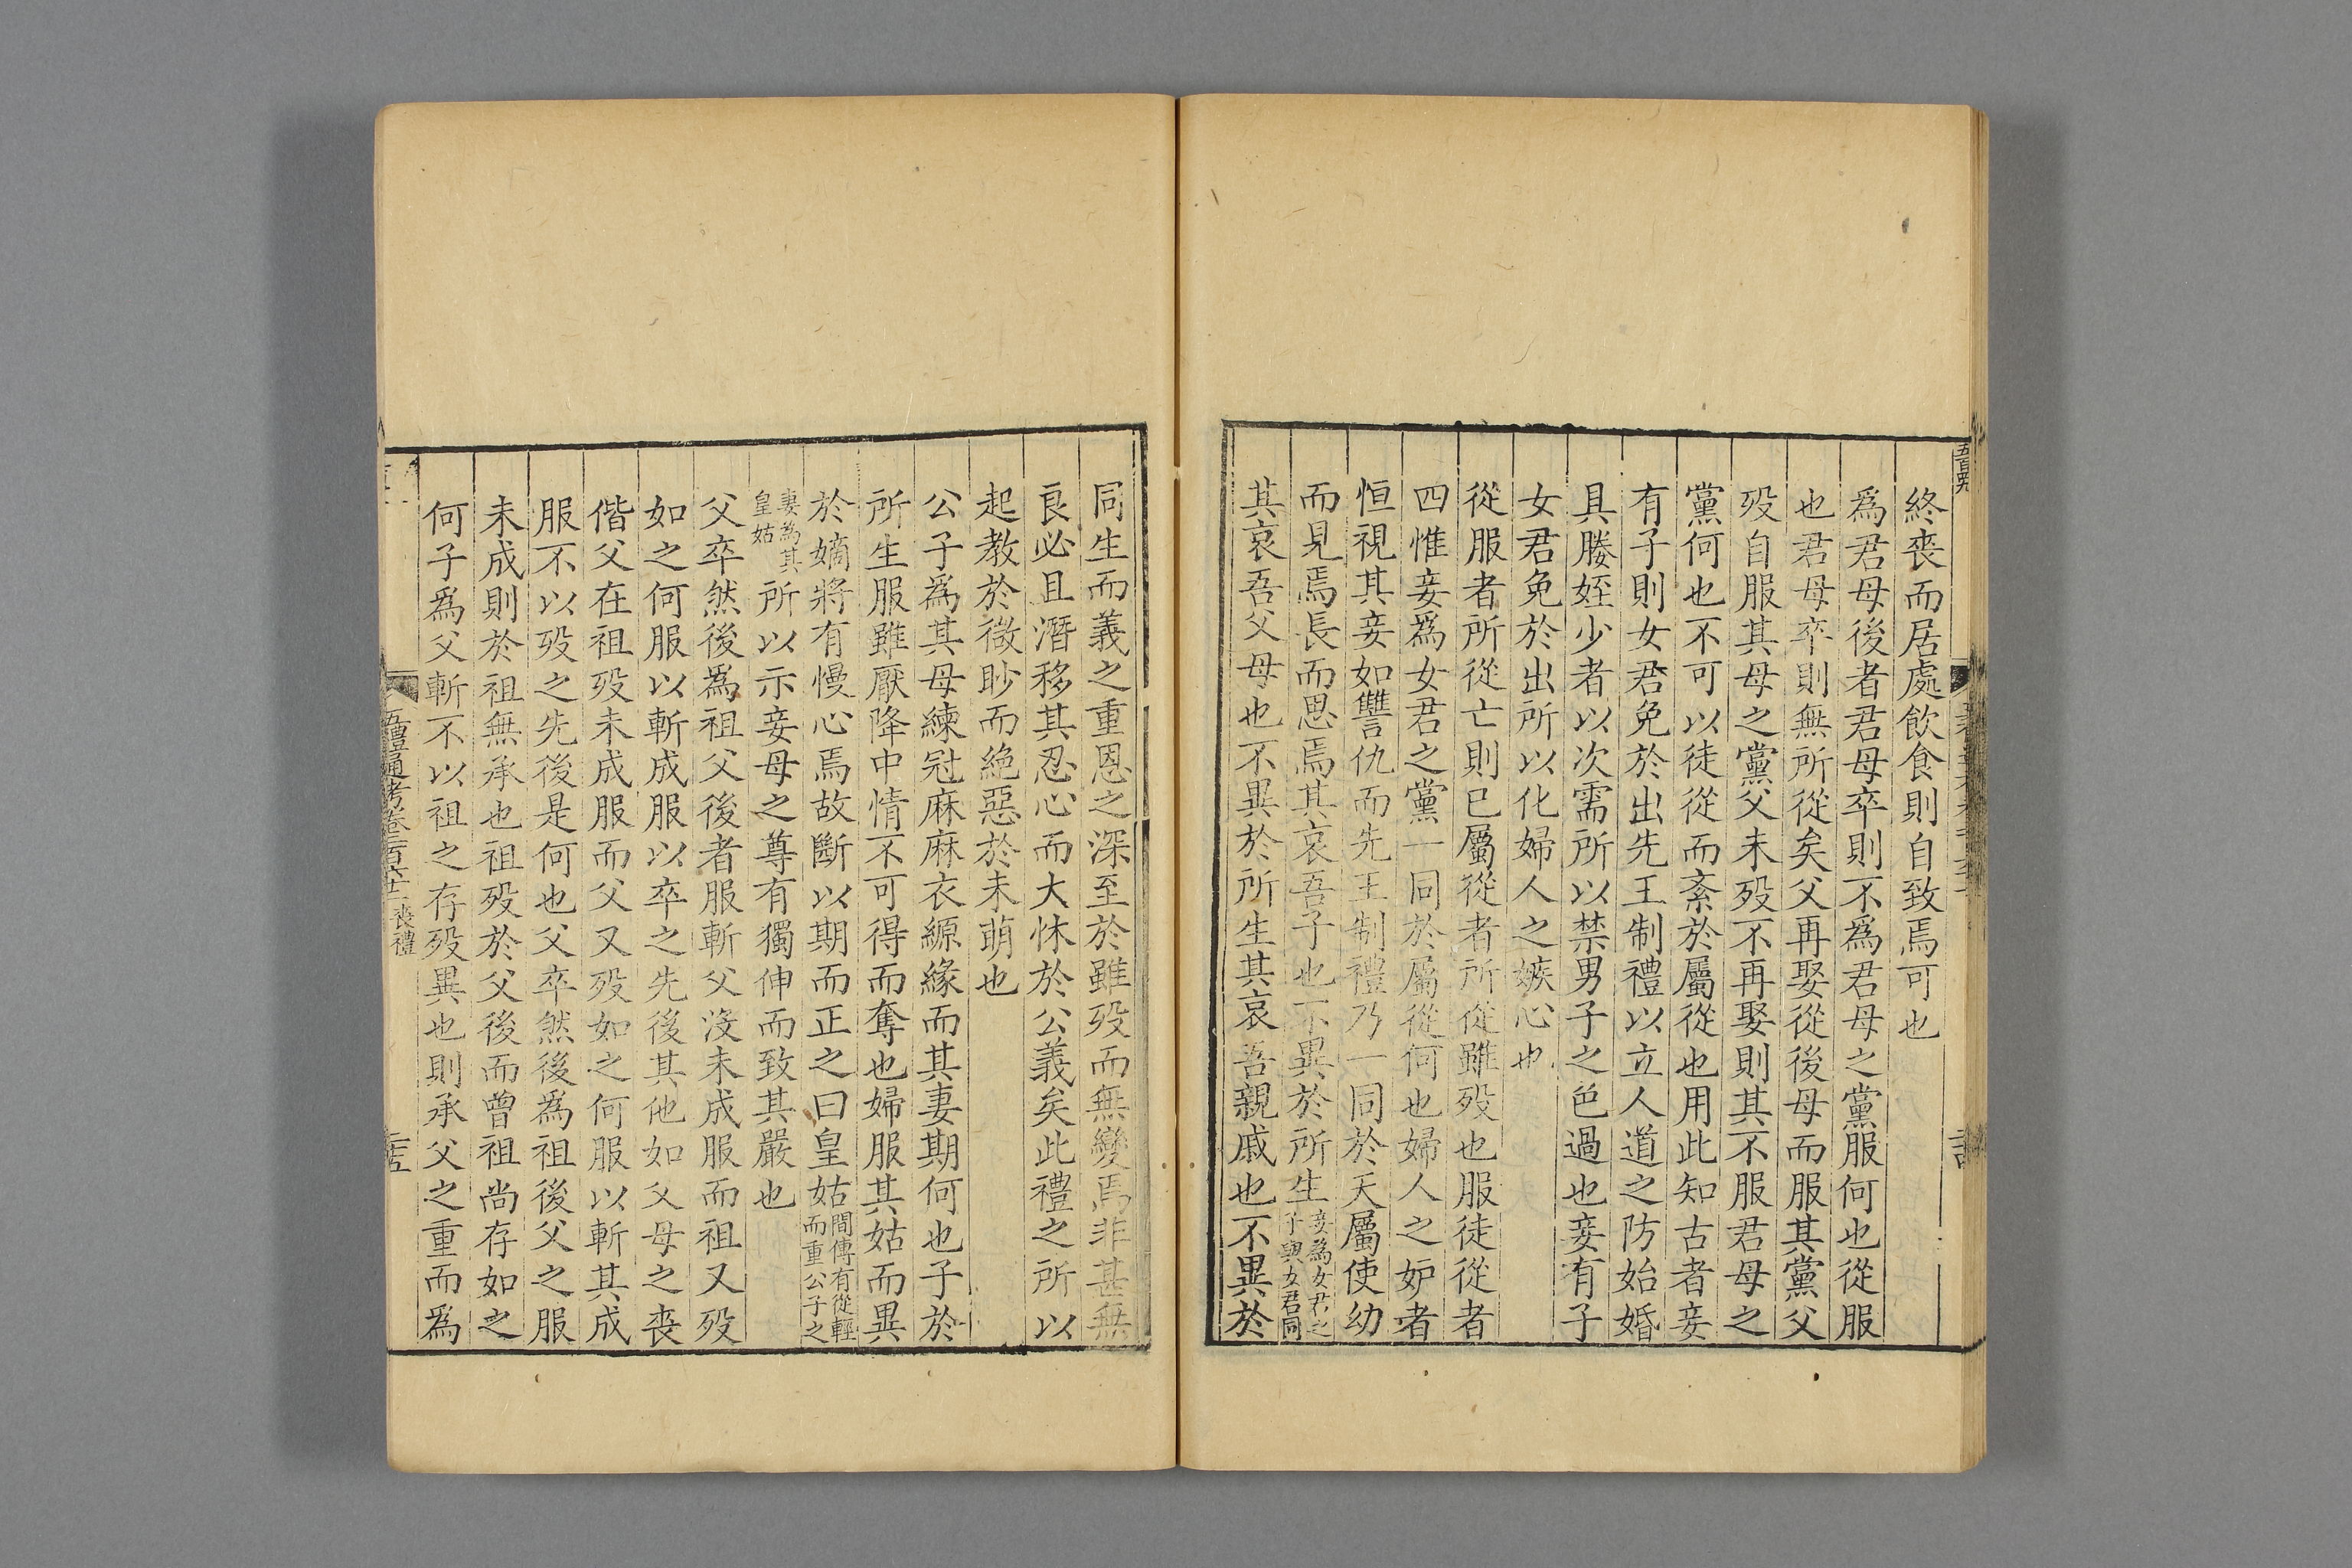 終喪而居處飲食則自致焉可也
爲君母後者君母卒則不爲君母之黨服何也從服
也君母卒則無所從矣父再娶從後母而服其黨父
歿自服其母之黨父未歿不再娶則其不服君母之
黨何也不可以徒從而紊於屬從也用此知古者妾
有子則女君免於出先王制禮以立人道之防始婚
具媵姪少者以次需所以禁男子之色過也妾有子
女君免於出所以化婦人之嫉心也
從服者所從亡則已屬從者所從雖歿也服徒從者
四惟妾爲女君之黨一同於屬從何也婦人之妒者
恒視其妾如讐仇而先王制禮乃一同於天屬使幼
而見焉長而思焉其哀吾子也不異於所生妾爲女君之
子與女君同
其哀吾父母也不異於所生其哀吾親戚也不異於
同生而義之重恩之深至於雖歿而無變焉非甚無
良必且潛移其忍心而大怵於公義矣此禮之所以
起教於微眇而絶惡於未萌也
公子爲其母練冠麻麻衣縓緣而其妻期何也子於
所生服雖厭降中情不可得而奪也婦服其姑而異
於嫡將有慢心焉故斷以期而正之曰皇姑間傳有從輕
而重公子之
妻爲其
皇姑所以示妾母之尊有獨伸而致其嚴也
父卒然後爲祖父後者服斬父沒未成服而祖又歿
如之何服以斬成服以卒之先後其他如父母之喪
偕父在祖歿未成服而父又歿如之何服以斬其成
服不以歿之先後是何也父卒然後爲祖後父之服
未成則於祖無承也祖歿於父後而曾祖尚存如之
何子爲父斬不以祖之存歿異也則承父之重而爲
五禮通考卷二百六十二 喪禮